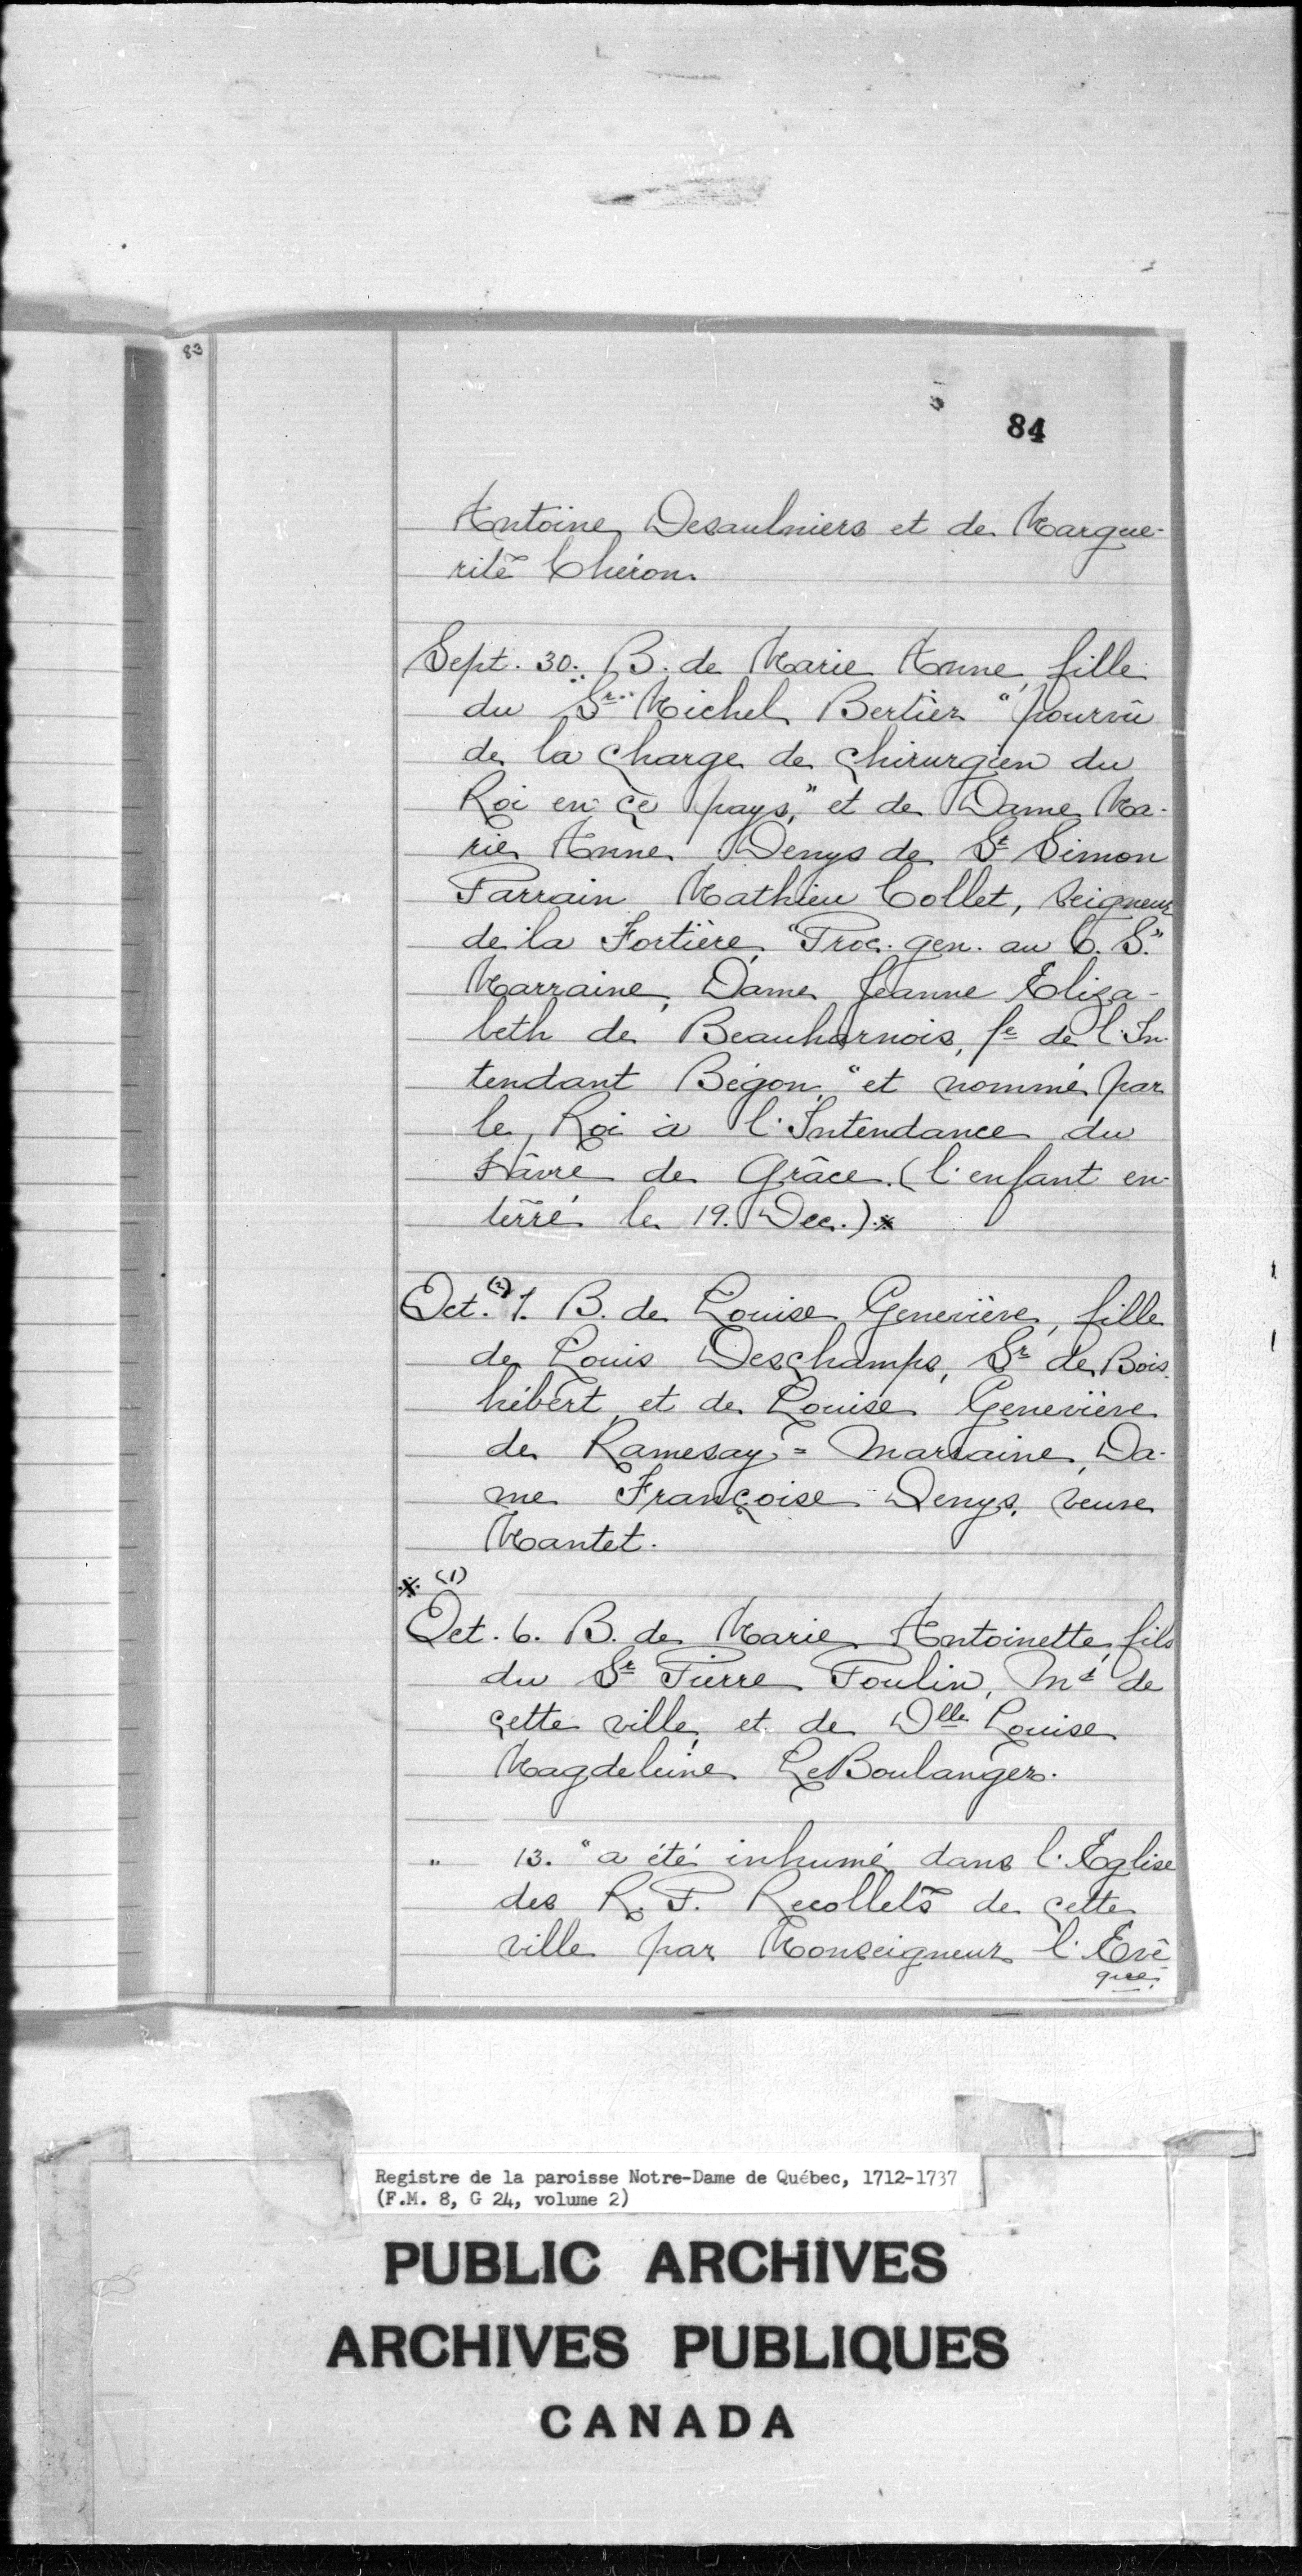 83
84
Antoine Desaulniers et de Margue-
rite Chéron.
Sept. 30. B. de Marie Anne, fille
du Sr Michel Bertier "pourvû
de la charge de chirurgien du
Roi en ce pays," et de Dame Ma-
rie Anne Denys de St Simon
Parrain Mathieu Collet, seigneur
de la Fortière, "Proc. gen. au C. S."
Marraine, Dame Jeanne Eliza-
beth de Beauharnois, fe de l'In-
tendant Bégon, "et nommé par
le Roi à l'Intendance du
Hâvre de Grâce. (l'enfant en-
terré le 19. Dec.) *
Oct. (2) 1. B. de Louise Geneviève, fille
de Louis Deschamps, Sr de Bois-
hébert et de Louise Geneviève
de Ramesay = Marraine, Da-
me Françoise Denys, veuve
Mantet.
* (1)
Oct. 6. B. de Marie Antoinette, fils
du Sr Pierre Poulin, Md de
cette ville, et de Dlle Louise
Magdeleine LeBoulanger.
" 13. "a été inhumé dans l'Eglise
des R. P. Recollets de cette
ville par Monseigneur l'Evê
que.
Registre de la paroisse Notre-Dame de Québec, 1712-1737
(F.M. 8, G 24, volume 2)
PUBLIC ARCHIVES
ARCHIVES PUBLIQUES
CANADA